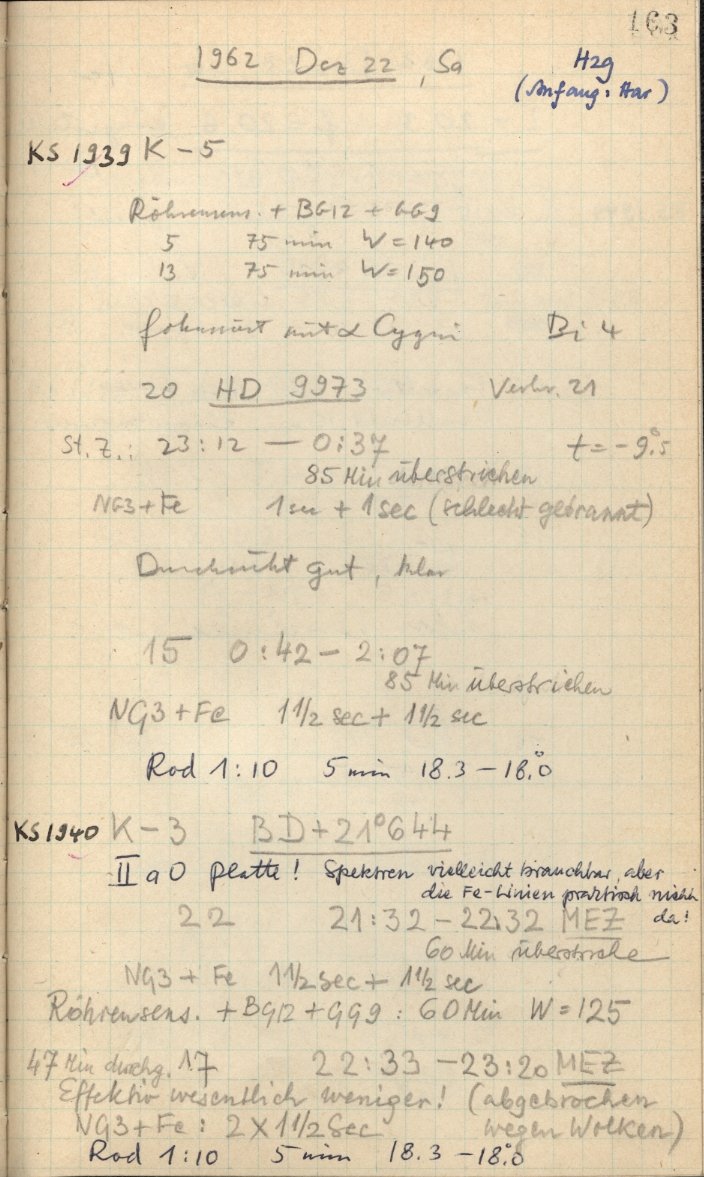 163
1962 Dez 22, Sa
Hzg
(Anfang: Har)
KS 1939 K-5
Röhrensens. + BG12 + GG9
5 75 min W=140
13 75 min W=150
fokussiert mit α Cygni Bi 4
20 HD 9973 Verbr. 21
St. Z.: 23:12 — 0:37 t = -9°.5
85 Min überstrichen
NG3+Fe 1sec + 1sec (schlecht gebrannt)
Durchsicht gut, klar
15 0:42 – 2:07
85 Min überstrichen
NG3+Fe 1 1/2 sec + 1 1/2 sec
Rod 1:10 5 min 18.3 – 18°.0
KS 1940 K-3 BD+21°644
II a O Platte! Spektren vielleicht brauchbar, aber
die Fe-Linien praktisch nicht
da!
22 21:32 – 22:32 MEZ
60 Min überstriche
NG3 + Fe 1 1/2 sec + 1 1/2 sec
Röhrensens. + BG12 + GG9 : 60 Min W = 125
47 Min durchg. 17 22:33 – 23:20 MEZ
Effektiv wesentlich weniger! (abgebrochen
wegen Wolken)
NG3+Fe: 2 X 1 1/2 Sec
Rod 1:10 5 min 18.3 – 18°.0